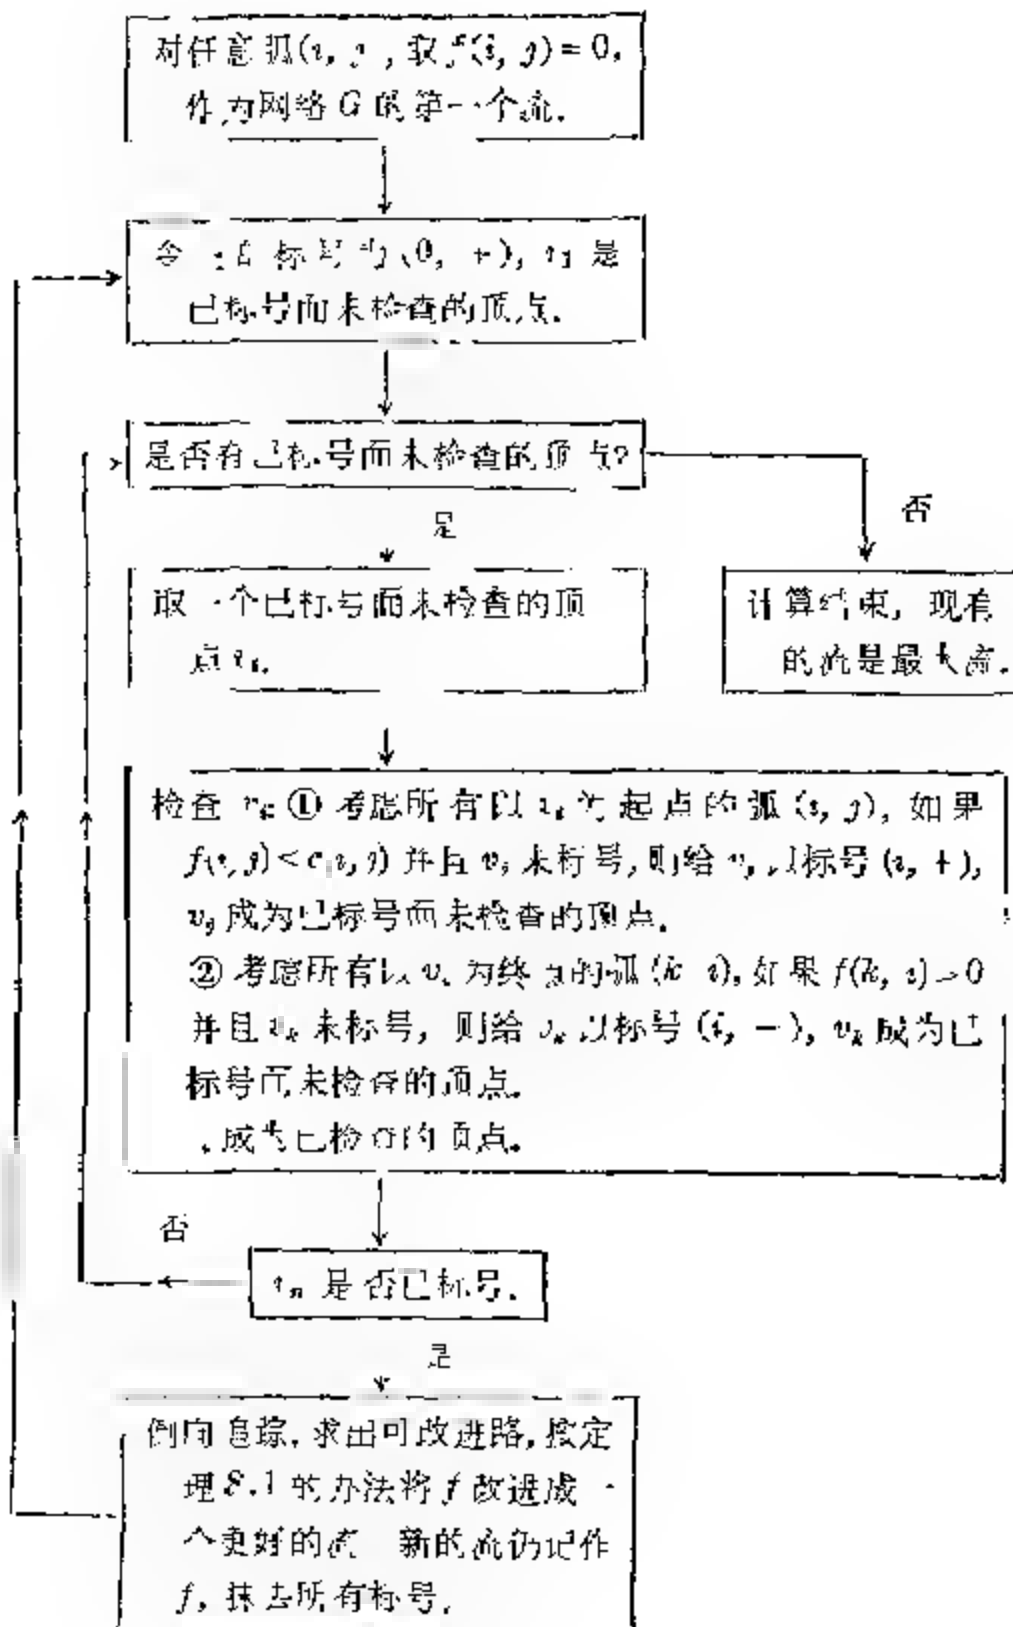 对任意弧(i, j, 取 f(i, j) = 0,
作为网络 G 的第一个流.
令 标号为 (0, +), v₁ 是
已标号而未检查的顶点.
是否有已标号而未检查的顶点?
否
是
取一个已标号而未检查的顶
点 vᵢ.
计算结束, 现有
的流是最大流.
检查 vᵢ: ① 考虑所有以 vᵢ 为起点的弧 (i, j), 如果
f(i, j) < c(i, j) 并且 vⱼ 未标号, 则给 vⱼ 以标号 (i, +),
vⱼ 成为已标号而未检查的顶点.
② 考虑所有以 vᵢ 为终点的弧 (k i), 如果 f(k, i) > 0
并且 vₖ 未标号, 则给 vₖ 以标号 (i, −), vₖ 成为已
标号而未检查的顶点.
成为已检查的顶点.
否
vₙ 是否已标号.
是
倒向追踪, 求出可改进路, 按定
理 8.1 的办法将 f 改进成一
个更好的流 新的流仍记作
f, 抹去所有标号.